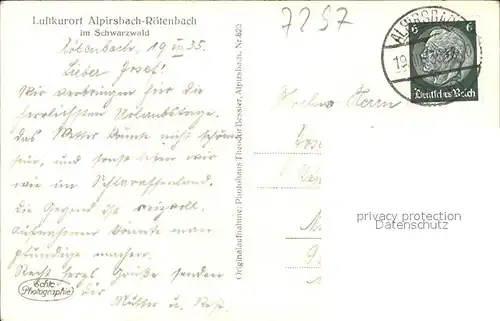 Luftkurort Alpirsbach-Rötenbach
im Schwarzwald
7297
Rötenbach, 19. VII 35.
Lieber Josef!
Wir verbringen hier die
herrlichsten Urlaubstage.
Das Wetter könnte nicht schöner
sein, und sonst leben wir
wie im Schlaraffenland.
Die Gegend ist reizvoll.
Aufnahmen könnte man
pfundige machen.
Recht herzl. Grüße senden
Dir
Mutter u.
Echte
Photographie
Originalaufnahme: Photohaus Theodor Besser, Alpirsbach. Nr.
ALPIRSBACH
19
6 6
Deutsches Reich
Herrn
privacy protection
Datenschutz